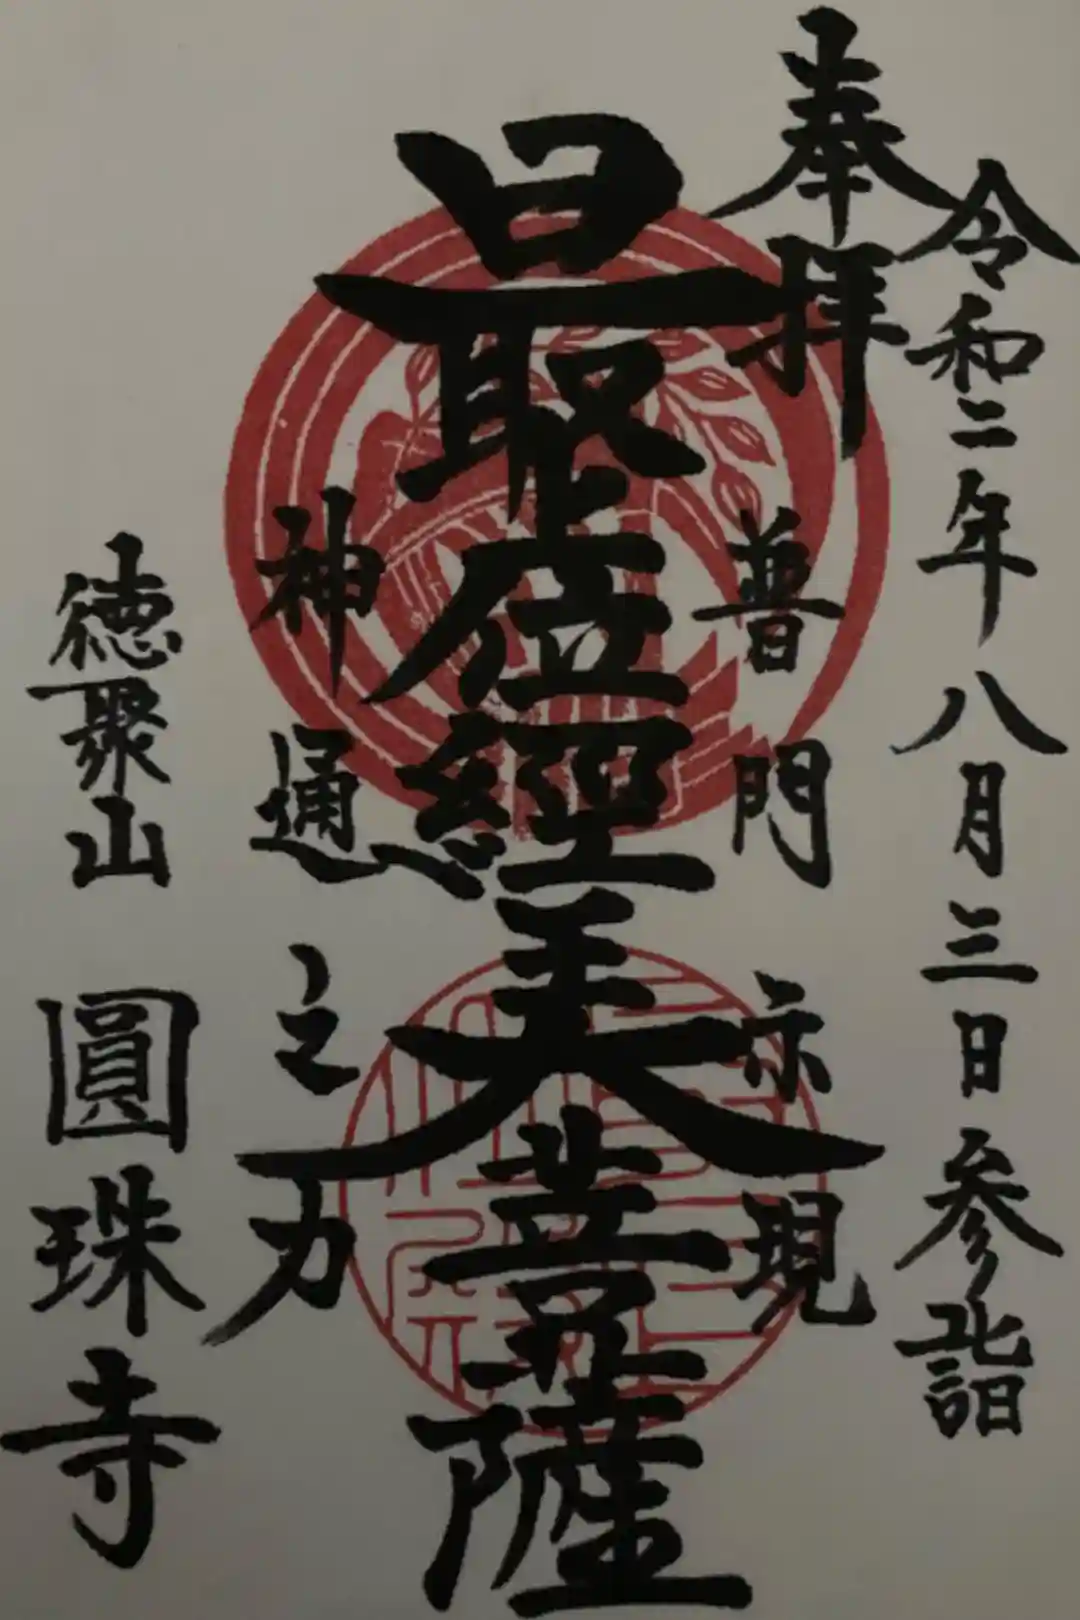 令和二年八月三日参詣
奉拝
普門示現
最上位經王大菩薩
神通之力
徳聚山 圓珠寺